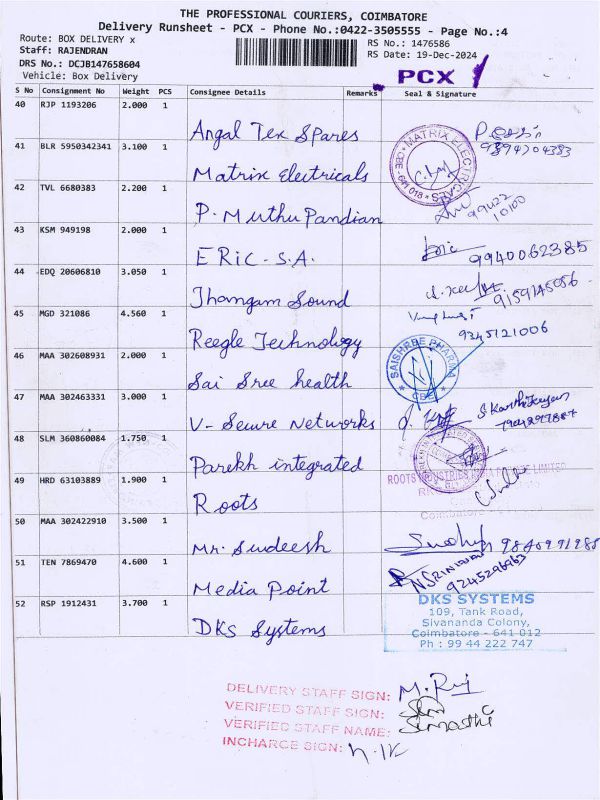 THE PROFESSIONAL COURIERS, COIMBATORE
Delivery Runsheet - PCX - Phone No.:0422-3505555 - Page No.:4
Route: BOX DELIVERY x RS No.: 1476586
Staff: RAJENDRAN RS Date: 19-Dec-2024
DRS No.: DCJB147658604
Vehicle: Box Delivery PCX
S No Consignment No Weight PCS Consignee Details Remarks Seal & Signature
40 RJP 1193206 2.000 1
Angal Tex Spares
41 BLR 5950342341 3.100 1
Matrix Electricals MATRIX ELECTRICALS
42 TVL 6680383 2.200 1
P. Muthu Pandian 99422 10100
43 KSM 949198 2.000 1
ERIC - S.A. Eric 9940062385
44 EDQ 20606810 3.050 1
Jhangam Sound
45 MGD 321086 4.560 1
Reegle Technology 9345121006
46 MAA 302608931 2.000 1
Sai Sree health SAISHREE PHARMA CBE
47 MAA 302463331 3.000 1
V- Secure Networks
48 SLM 360860084 1.750 1
Parekh integrated
49 HRD 63103889 1.900 1
Roots ROOTS INDUSTRIES LIMITED
50 MAA 302422910 3.500 1
Mr. Sudeesh
51 TEN 7869470 4.600 1
Media Point N SRINIVASAN 9245296963
52 RSP 1912431 3.700 1
DKS Systems
DKS SYSTEMS
109, Tank Road,
Sivananda Colony,
Coimbatore - 641 012
Ph : 99 44 222 747
DELIVERY STAFF SIGN: M. Raj
VERIFIED STAFF SIGN:
VERIFIED STAFF NAME: Sumathi
INCHARGE SIGN: